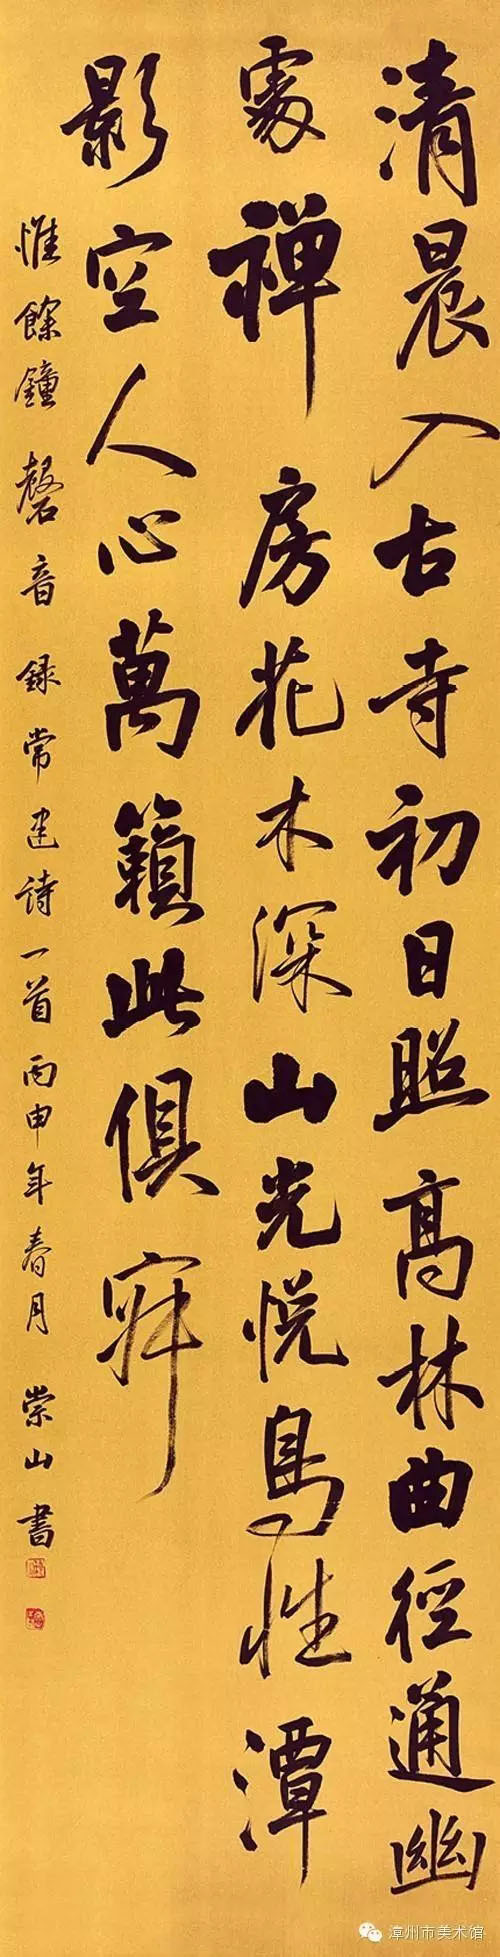 清晨入古寺初日照高林曲徑通幽
處禪房花木深山光悅鳥性潭
影空人心萬籟此俱寂
惟餘鐘磬音錄常建诗一首丙申年春月崇山書
漳州市美术馆